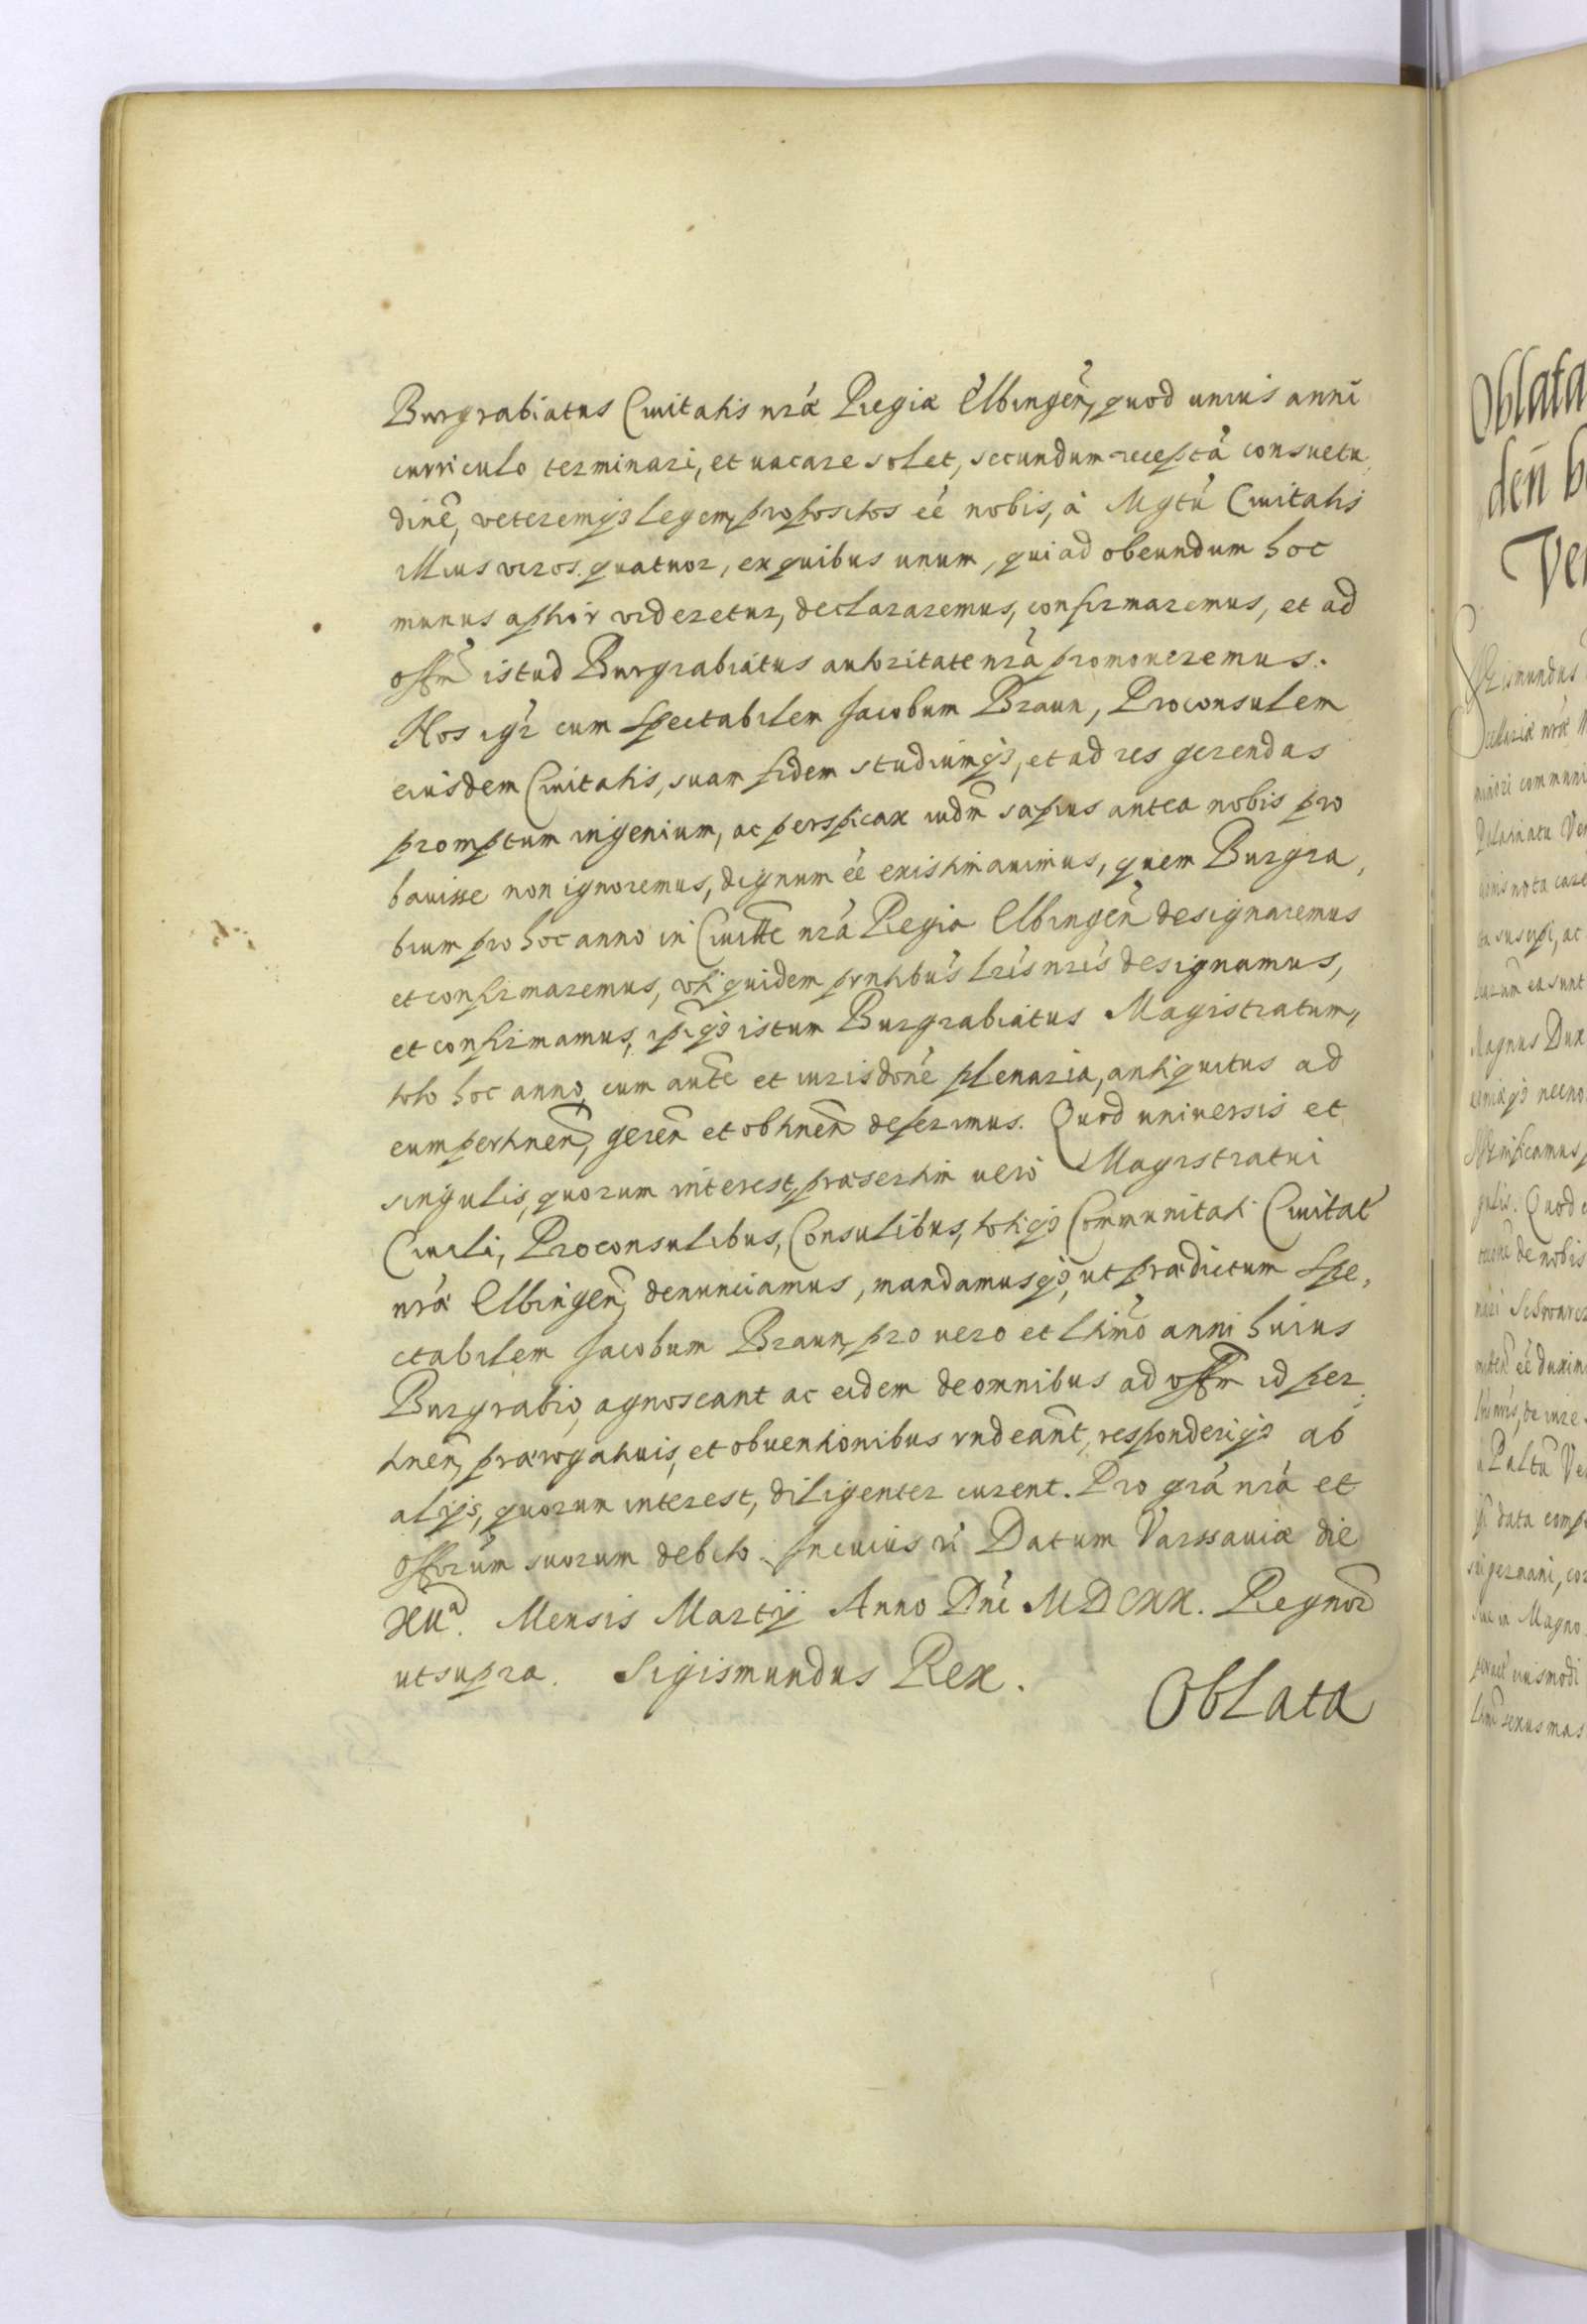 Burgrabiatus Civitatis nræ Regiæ Elbingen, quod unius anni
curriculo terminari, et vacare solet, secundum receptã consuetu,
dinẽ, veteremq3 legem, propositos eẽ nobis, à Mgtũ Civitatis
illius viros quatuor, ex quibus unum, qui ad obeundum hoc
munus aptior videretur, declararemus, confirmaremus, et ad
offm̃ istud Burgrabiatus authoritate nrã promoveremus.
Nos igr̃ cum Spectabilem Jacobum Braun, Proconsulem
eiusdem Civitatis, suam fidem studiumq3, et ad res gerendas
promptum ingenium, ac perspicax iudm̃ sæpius antea nobis pro
bavisse non ignoremus, dignum eẽ existimavimus, quem Burgra,
bium pro hoc anno in Civitte nrã Regia Elbingeñ designaremus
et confirmaremus, uti quidem pnt̃ibus lrĩs nrĩs designamus,
et confirmamus, ipiq3 istum Burgrabiatus Magistratum,
toto hoc anno, cum autte et iurisdonẽ plenaria, antiquitus ad
eum pertineñ, gereñ et obtineñ deferimus. Quod universis et
singulis, quorum interest, præsertim verò Magistratui
Civili, Proconsulibus, Consulibus, totiq3 Communitati Civitat̃
nræ Elbingeñ denunciamus, mandamusq3, ut prædictum Spe,
ctabilem Jacobum Braun, pro vero et ltimõ anni huius
Burgrabio, agnoscant ac eidem de omnibus ad offm̃ id per,
tineñ, prærogativis, et obventionibus rñdeant, responderiq3 ab
alijs, quorum interest, diligenter curent. Pro grã nrã et
offorũm suorum debito. In cuius rĩ Datum Varssaviæ die
XIIã. Mensis Martij Anno Dnĩ MDCXX. Regnoꝝ
ut supra. Sigismundus Rex.
Oblata